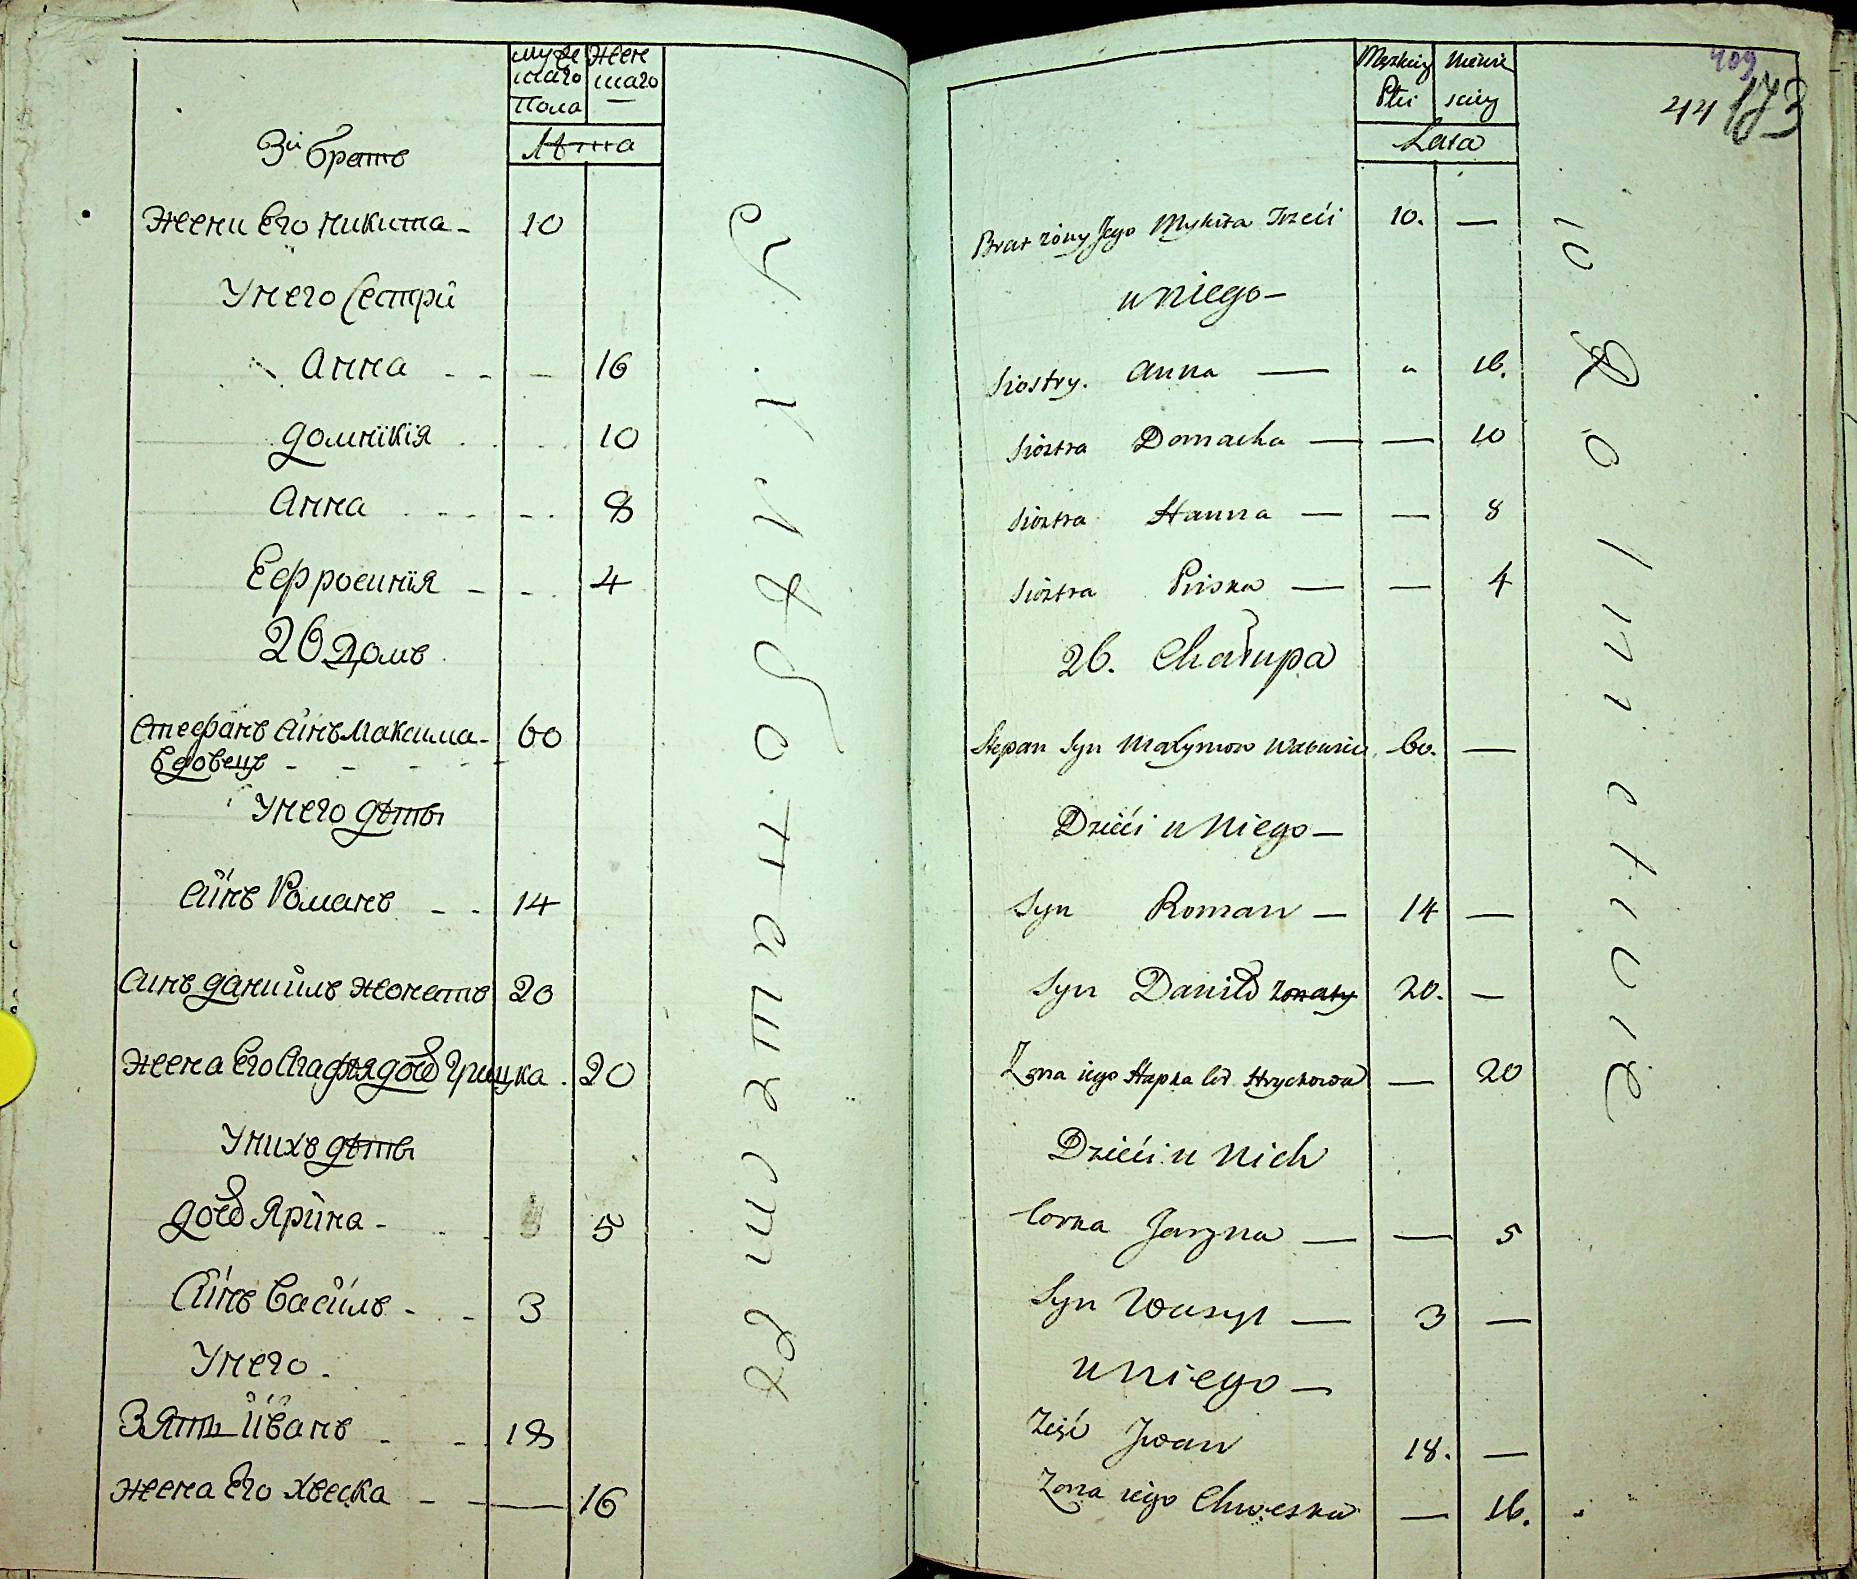 мужескаго пола | женскаго —
Лѣта
3й братъ
жени Его никита - 10
У него Сестри
Анна - - — 16
домнїкїя . . . 10
Анна . . . - - . 8
Ефросинїя - - . 4
26 Домъ
Стефанъ Сїнъ Максима - 60
Вдовецъ - - - - -
У него дѣти
Сїнъ Романъ - - 14
Синъ даниилъ жонатъ 20
жена Его Агафія дочь Грицка . 20
У нихъ дѣти
дочь Ярина - 5
Сїнъ Василь - . - 3
У него .
Зять Иванъ - - 18
жена Его хвеска - - — 16
Męzkiey Płci | Niewiesciey
Lata
409
44 173
Brat żony Jego Mykita Trzeci 10. —
u Niego —
Siostry. Anna — " 16.
Siostra Domacka — — 10
Siostra Hanna — — 8
Siostra Priska — — 4
26. Chałupa
Stepan Syn Maxymow Wdowiec 60. —
Dzieći u Niego —
Syn Roman — 14 —
Syn Daniło żonaty 20. —
Żona iego Hapka Cor. Hryckowa — 20
Dzieći u Nich
Corka Jaryna — — 5
Syn Wasyl — 3 —
u Niego —
Zięć Jwan 18. —
Żona iego Chweska — 16.